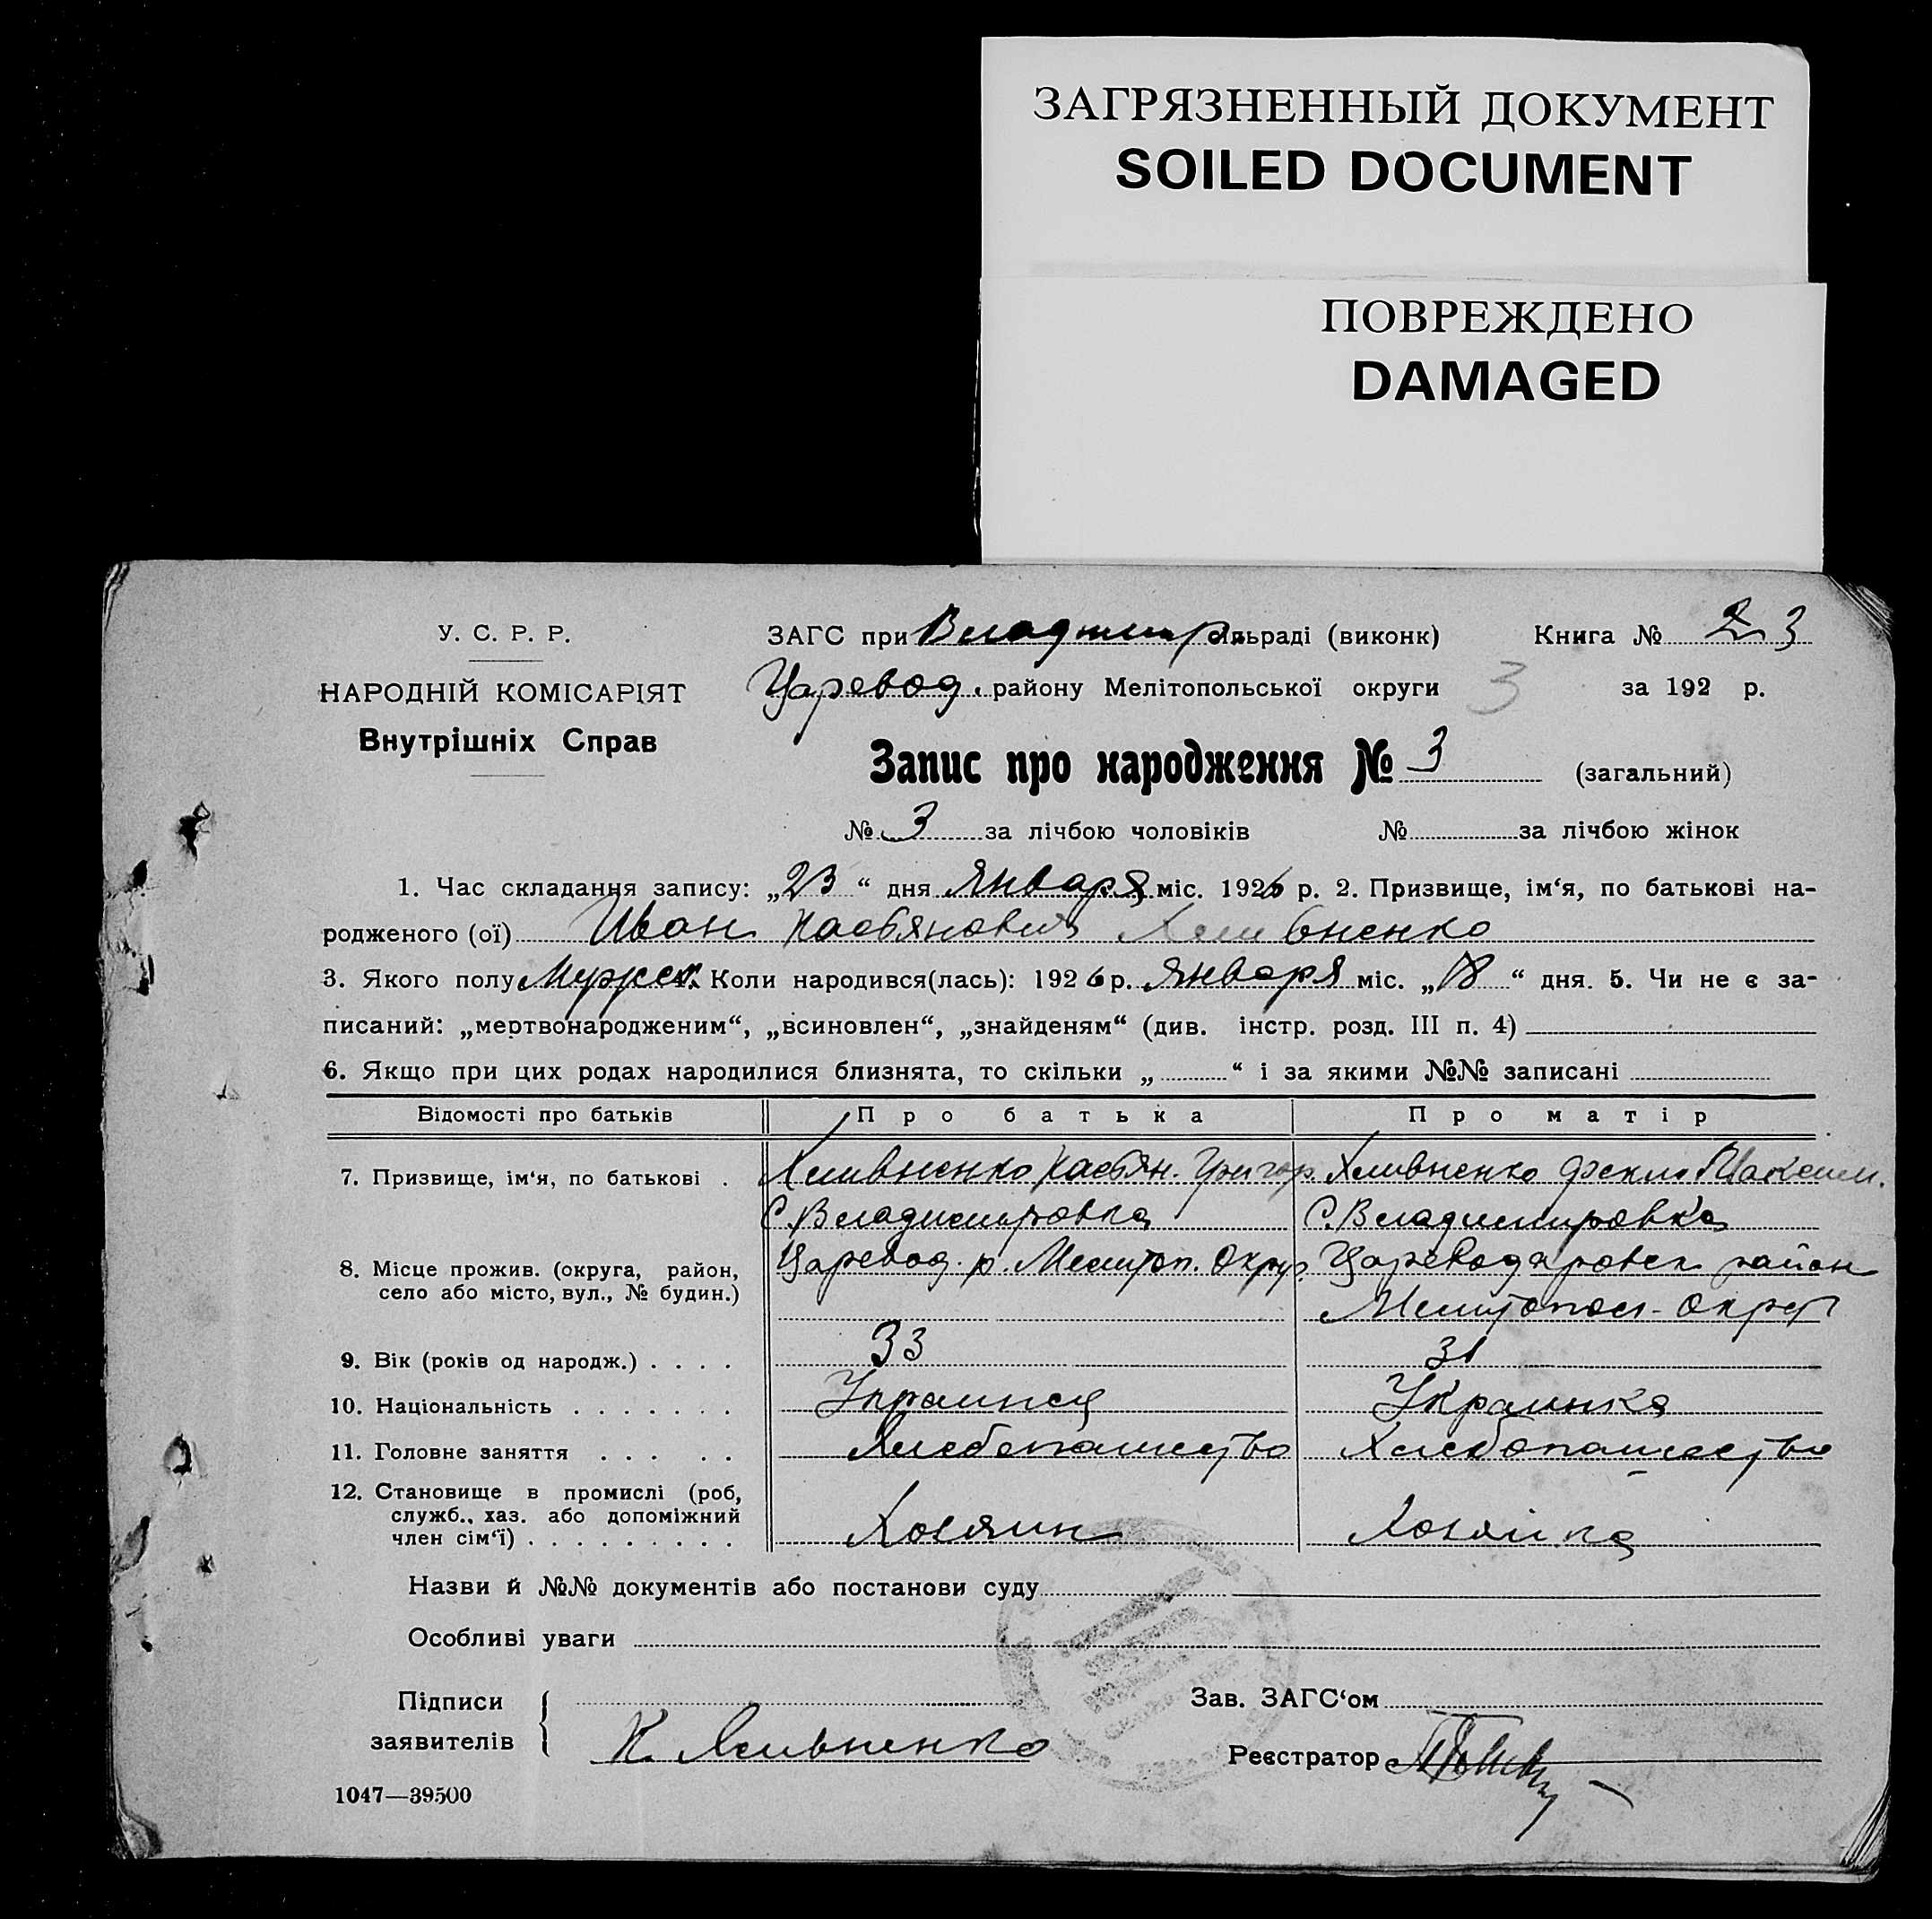 ЗАГРЯЗНЕННЫЙ ДОКУМЕНТ
SOILED DOCUMENT
ПОВРЕЖДЕНО
DAMAGED
У. С. Р. Р.
НАРОДНІЙ КОМІСАРІЯТ
Внутрішніх Справ
ЗАГС при Владимир. сільраді (виконк) Книга № 23
Царевод. району Мелітопольської округи 3 за 192 р.
Запис про народження № 3 (загальний)
№ 3 за лічбою чоловіків № за лічбою жінок
1. Час складання запису: „23“ дня Января міс. 1926 р. 2. Призвище, ім‘я, по батькові на-
родженого (ої) Иван Касьянович Хливненко
3. Якого полу Мужск. Коли народився(лась): 1926 р. Января міс. „18“ дня. 5. Чи не є за-
писаний: „мертвонародженим“, „всиновлен“, „знайденям“ (див. інстр. розд. III п. 4)
6. Якщо при цих родах народилися близнята, то скільки „ “ і за якими №№ записані
Відомості про батьків Про батька Про матір
7. Призвище, ім‘я, по батькові . Хливненко Касьян. Григор. Хливненко Фекла Максим.
С. Владимировка С. Владимировка
8. Місце прожив. (округа, район, село або місто, вул., № будин.) Царевод. р. Мелитоп. Округ Цареводаровск район
Мелитопол. Округ
9. Вік (років од народж.) . . . . 33 31
10. Національність . . . . . . . Украинец Украинка
11. Головне заняття . . . . . Хлебопашество Хлебопашество
12. Становище в промислі (роб, служб., хаз. або допоміжний член сім‘ї) . . . . . . . . . Хозяин Хозяйка
Назви й №№ документів або постанови суду
Особливі уваги
Підписи заявителів К. Хливненко
Зав. ЗАГС‘ом
Реєстратор
1047—39500